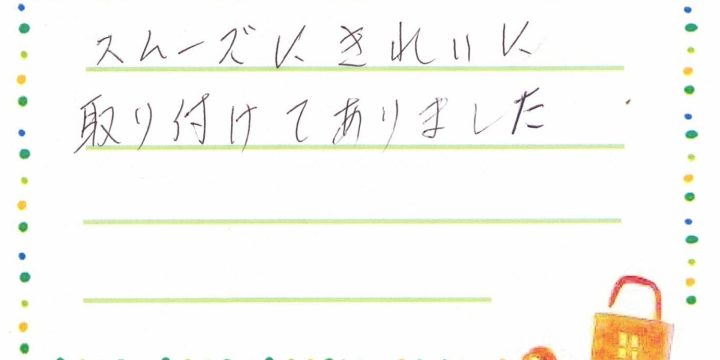 スムーズに きれいに
取り付けてありました